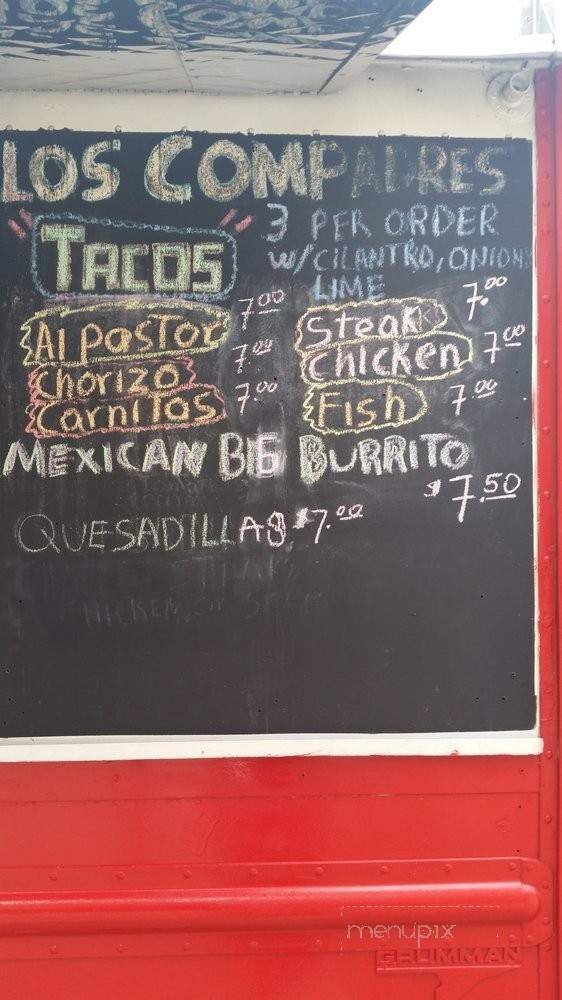 LOS COMPADRES
TACOS
3 PER ORDER
W/CILANTRO, ONION
LIME
Al PasTor 7.00
Chorizo 7.00
CarniTas 7.00
Steak 7.00
Chicken 7.00
Fish 7.00
MEXICAN BIG BURRITO
$7.50
QUESADILLAS $7.00
menupix
GRUMMAN